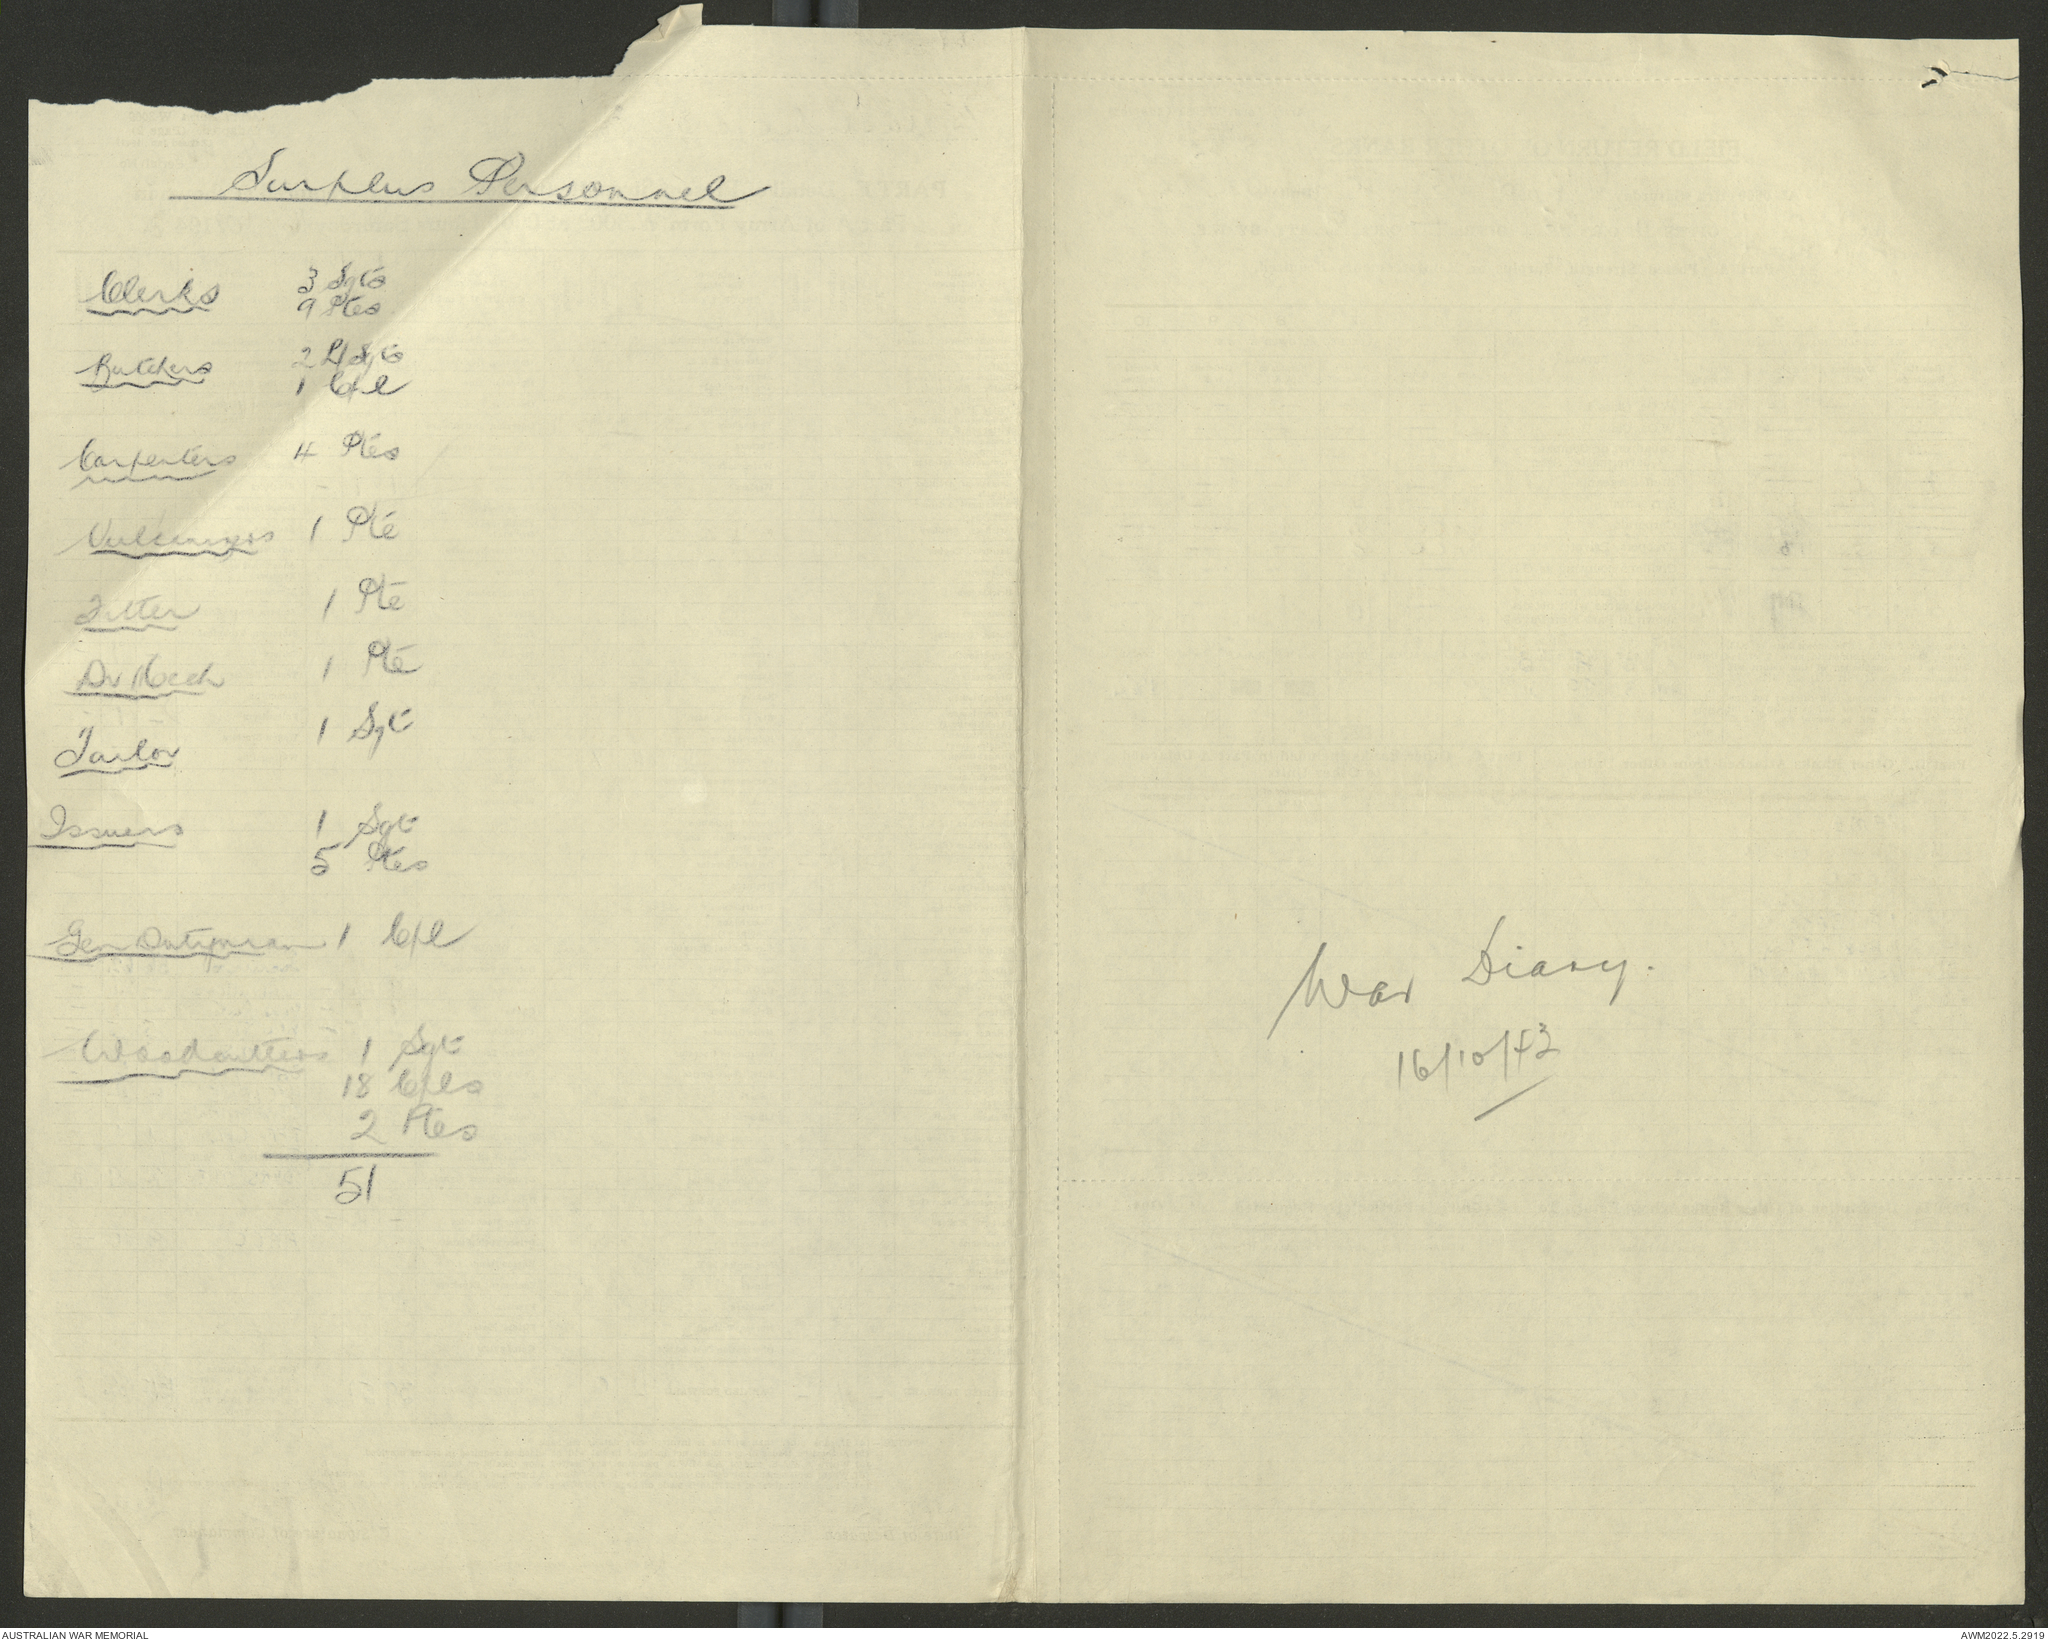 Surplus Personnel
Clerks 3 Sgts
9 Ptes
Butchers 2 L/Sgts
1 Cpl
Carpenters 4 Ptes
Vulcanizers 1 Pte
Fitter 1 Pte
Dvr Mech 1 Pte
Tailor 1 Sgt
Issuers 1 Sgt
5 Ptes
Gen Dutyman 1 Cpl
Woodcutters 1 Sgt
18 Cpls
2 Ptes
51
War Diary.
16/10/43
AUSTRALIAN WAR MEMORIAL
AWM2022.5.2919